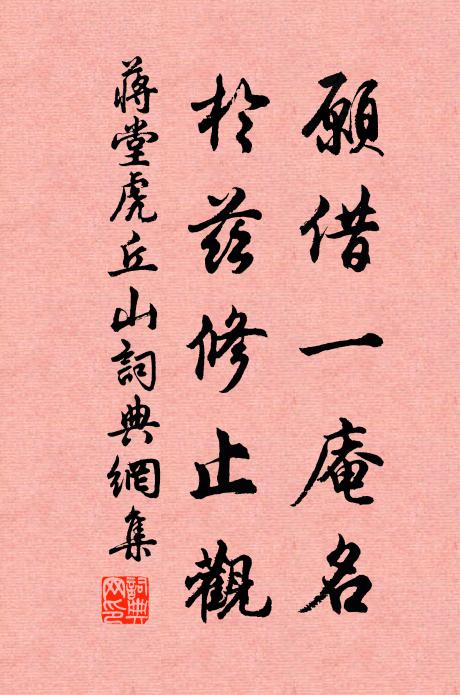 願借一庵名
於茲修止觀
蔣堂虎丘山詞典網集
詞典
网印